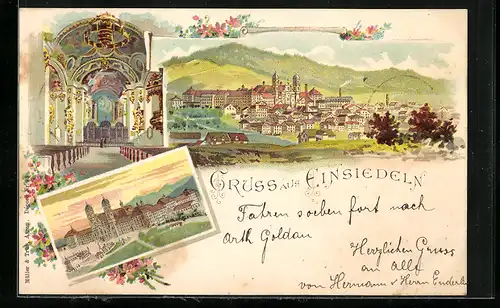 GRUSS AUS EINSIEDELN
Fahren soeben fort nach
Arth Goldau
Herzlichen Gruss
an Alle
von Hermann & Herrn Enderli
Müller & Trüb, Aarau.